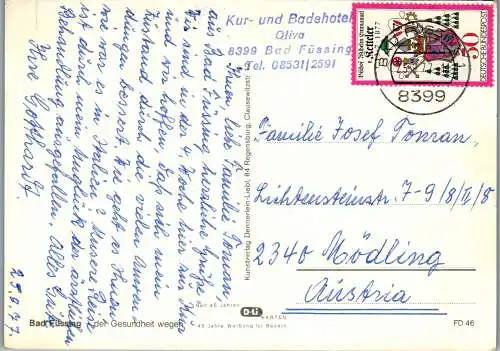 Kur- und Badehotel
Oliva
8399 Bad Füssing
Tel. 08531/2591
Bischof Wilhelm Emmanuel
Ketteler
1877
50
DEUTSCHE BUNDESPOST
8399
Ihnen, liebe Familie Tonran,
aus Bad Füssing herzliche Grüße.
Wir sind in der 4. Woche hier zur Kur
und hoffen, daß sich mein
Zustand durch die vielen Anwen-
dungen bessert. Wie geht es Ihnen
wie war es in Italien? Unsere Reise
ist durch mein Unglück der ärztlichen
Behandlung ausgefallen. Alles Gute
Ihre Gotthardt.
25.9.77.
Familie Josef Tonran,
Lichtensteinstr. 7-9/8/II/8
2340 Mödling
Austria
Kunstverlag Dennerlein-Liebl, 84 Regensburg, Clausewitzstr.
Bad Füssing der Gesundheit wegen
seit 45 Jahren
D-Li
KARTEN
45 Jahre Werbung für Bayern
FD 46